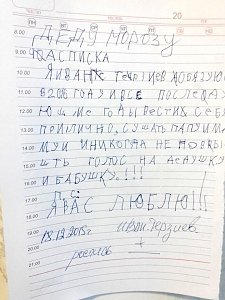 20
8.00 ДЕДУ МОРОЗУ
9.00 РАСПИСКА
10.00 Я ИВАН ТЕРЗИЕВ ОБЯЗУЮС
11.00 В 2016 ГОДУ И ВСЕ ПОСЛЕДУ
12.00 ЮЩИЕ ГОДЫ ВЕСТИ СЕБЯ
13.00 ПРИЛИЧНО, СЛУШАТЬ ПАПУ И МА
14.00 МУ И НИКОГДА НЕ ПОВЫ
15.00 ШТЬ ГОЛОС НА ДЕДУШКУ
16.00 И БАБУШКУ.!!!
17.00 P.S.
18.00 Я ВАС ЛЮБЛЮ!!!
19.00 18.12.2015г Иван Терзиев
20.00 роспись
21.00